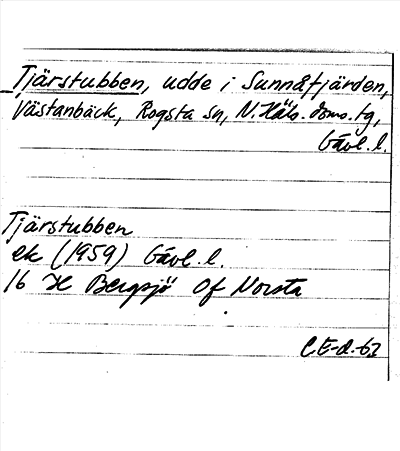 Tjärstubben, udde i Sunnåfjärden,
Västanbäck, Rogsta sn, N. Häls. doms. tg,
Gävl. l.
Tjärstubben
ek (1959) Gävl. l.
16 H Bergsjö Of Norsta
CE-d.-62